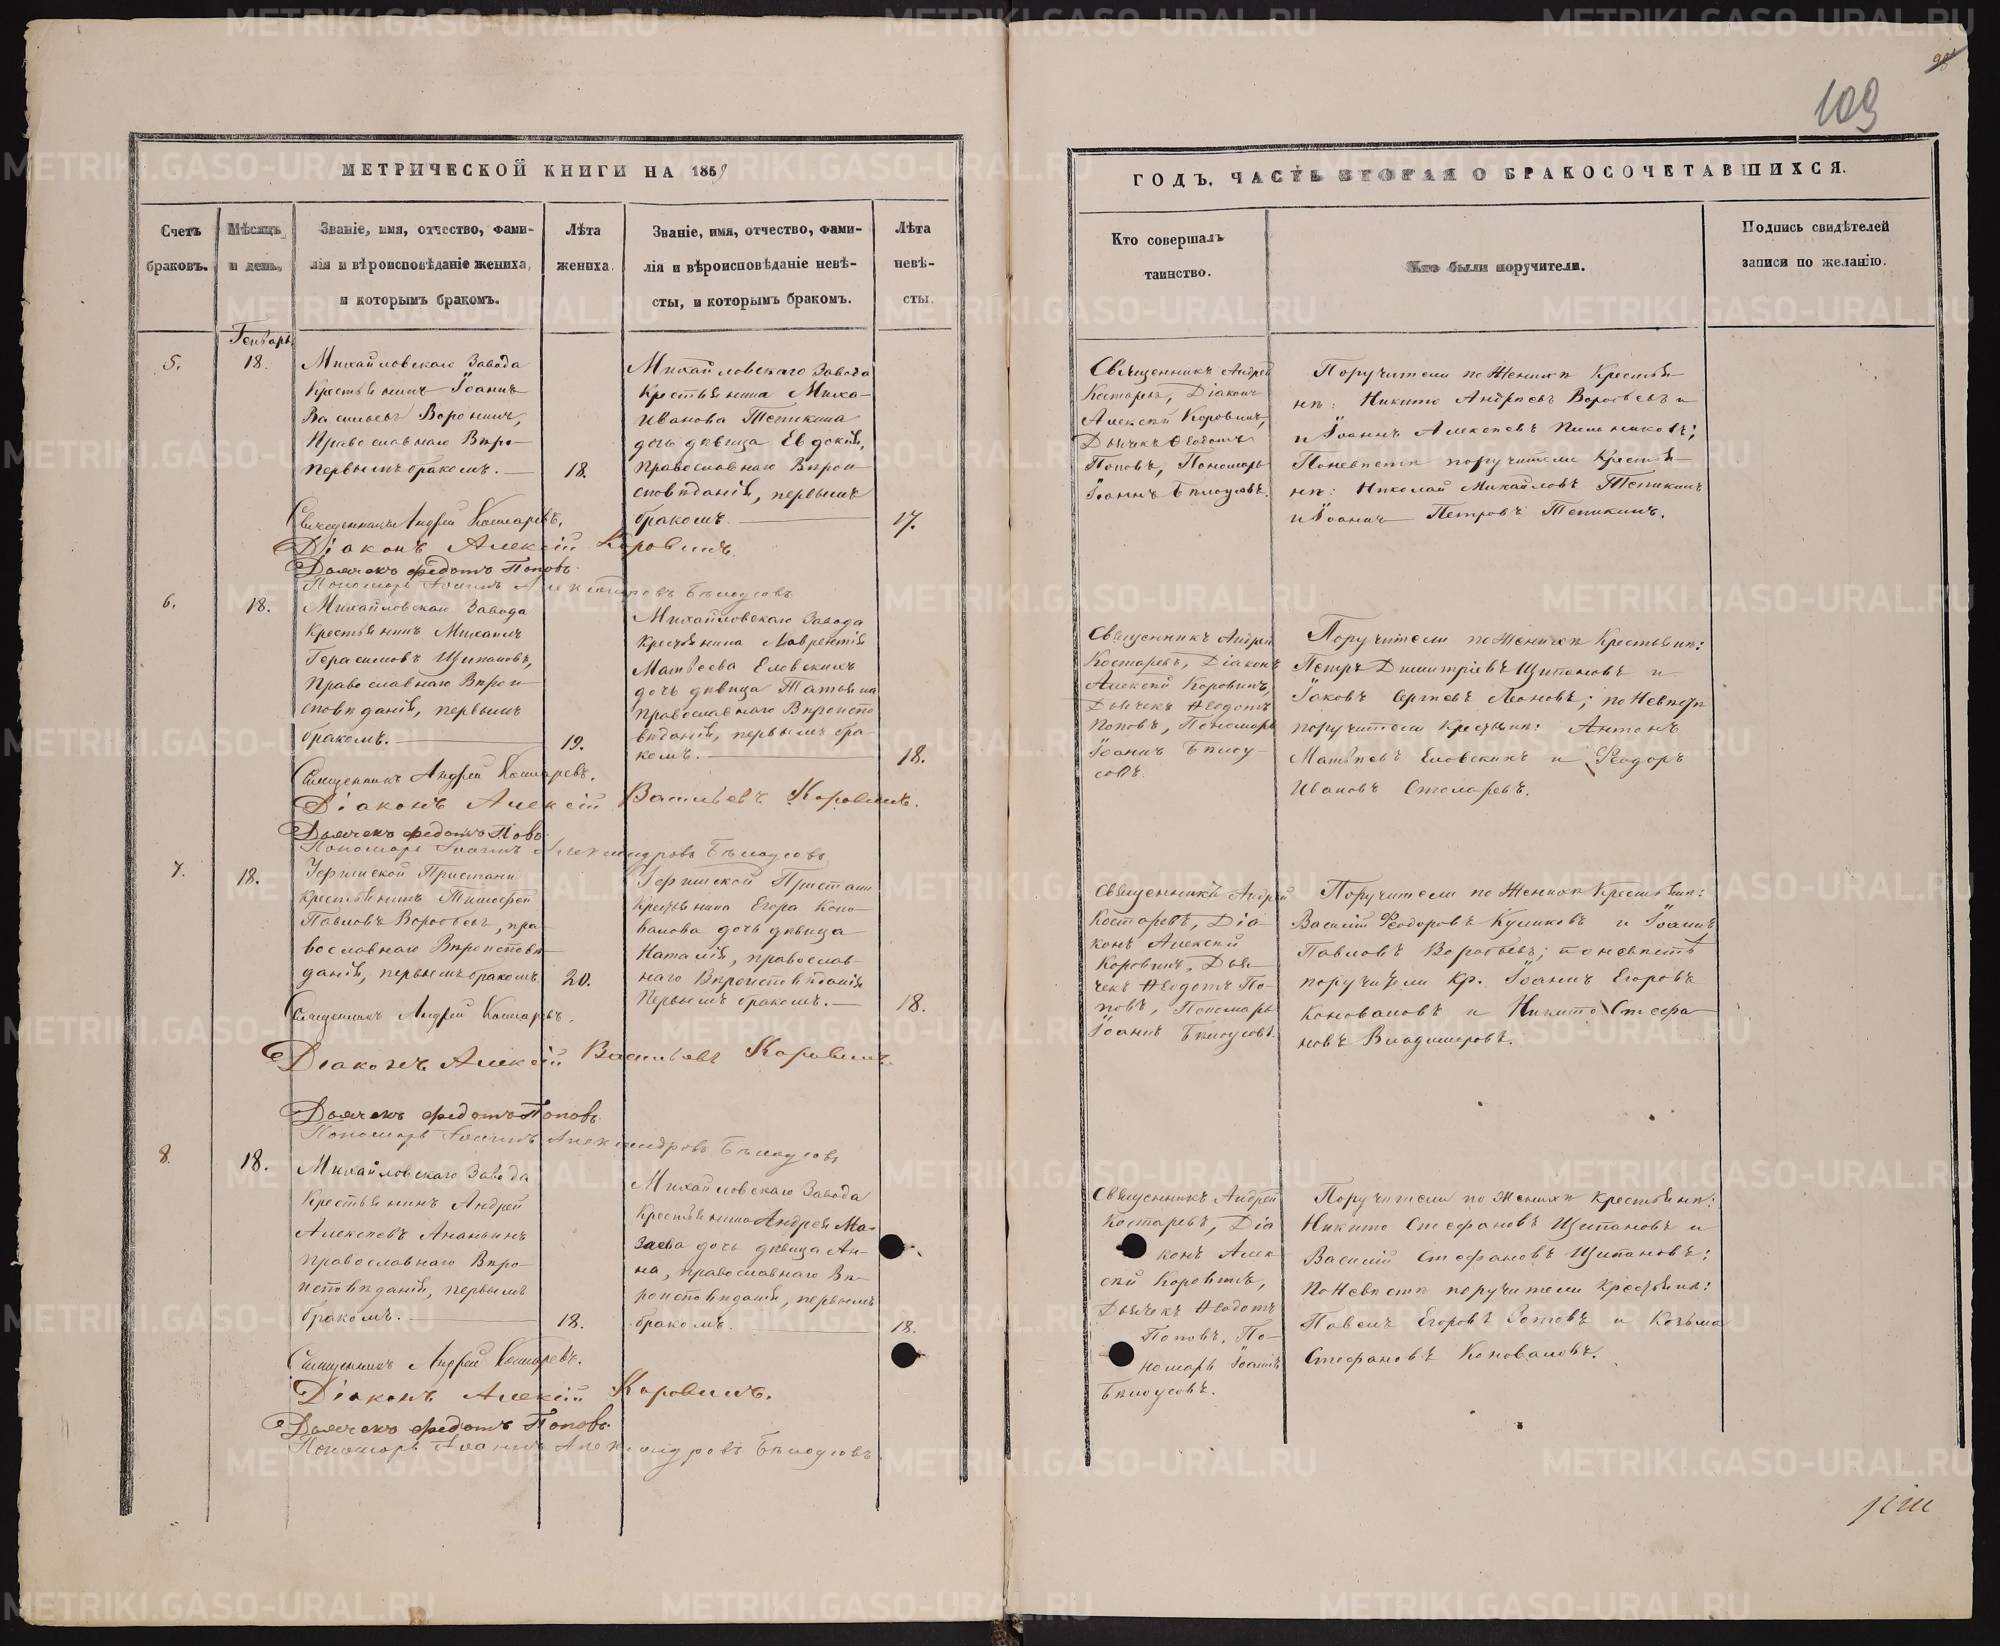 109
МЕТРИЧЕСКОЙ КНИГИ НА 1859
ГОДЪ, ЧАСТЬ ВТОРАЯ О БРАКОСОЧЕТАВШИХСЯ.
Счетъ
браковъ.
Мѣсяцъ
и день.
Званіе, имя, отчество, фами-
лія и вѣроисповѣданіе жениха,
и которымъ бракомъ.
Лѣта
жениха.
Званіе, имя, отчество, фами-
лія и вѣроисповѣданіе невѣ-
сты, и которымъ бракомъ.
Лѣта
невѣ-
сты.
Кто совершалъ
таинство.
Кто были поручители.
Подпись свидѣтелей
записи по желанію.
Генварь
5.
18.
Михайловскаго Завода
Крестьянинъ Іоаннъ
Васильевъ Воронинъ,
Православнаго Вѣро-
первымъ бракомъ.
18.
Михайловскаго Завода
Крестьянина Миха-
Иванова Тепикина
дочь дѣвица Евдокія,
Православнаго Вѣрои-
сповѣданія, первымъ
бракомъ.
17.
Священникъ Андрей
Костаревъ, Діаконъ
Алексѣй Коровинъ,
Дьячекъ Ѳеодотъ
Поповъ, Пономарь
Іоаннъ Бѣлоусовъ.
Поручители по Женихѣ Крестья-
не: Никита Андреевъ Воробьевъ и
и Іоаннъ Алексѣевъ Пильниковъ;
По невѣстѣ поручители Крестья-
не: Николай Михайловъ Тепикинъ
и Іоаннъ Петровъ Тепикинъ.
Священникъ Андрей Костаревъ.
Діаконъ Алексѣй Коровинъ.
Дьячекъ Федотъ Поповъ.
Пономарь Іоаннъ Александровъ Бѣлоусовъ
6.
18.
Михайловскаго Завода
Крестьянинъ Михаилъ
Герасимовъ Щипановъ,
Православнаго Вѣрои-
сповѣданія, первымъ
бракомъ.
19.
Михайловскаго Завода
Крестьянина Лаврентія
Матвѣева Еловскихъ
дочь дѣвица Татьяна
православнаго Вѣроиспо
вѣданія, первымъ бра-
комъ.
18.
Священникъ Андрей
Костаревъ, Діаконъ
Алексѣй Коровинъ,
Дьячекъ Ѳеодотъ
Поповъ, Пономарь
Іоаннъ Бѣлоу-
совъ.
Поручители по Женихѣ Крестьяне:
Петръ Димитріевъ Щипановъ и
Іаковъ Сергѣевъ Леоновъ; по Невѣстѣ
поручители крестьяне: Антонъ
Матвѣевъ Еловскихъ и Ѳеодоръ
Ивановъ Столаревъ.
Священникъ Андрей Костаревъ.
Діаконъ Алексѣй Васильевъ Коровинъ.
Дьячекъ Федотъ Повъ
Пономарь Іоаннъ Александровъ Бѣлоусовъ
7.
18.
Уфимской Пристани
Крестьянинъ Тимофей
Павловъ Воробьевъ, пра-
вославнаго Вѣроисповѣ-
данія, первымъ бракомъ
20.
Уфимской Пристани
Крестьянина Егора Коно-
валова дочь дѣвица
Наталія, православ-
наго Вѣроисповѣданія
Первымъ бракомъ.
18.
Священникъ Андрей
Костаревъ, Діа-
конъ Алексѣй
Коровинъ, Дья-
чекъ Ѳеодотъ По-
повъ, Пономарь
Іоаннъ Бѣлоусовъ.
Поручители по Женихѣ Крестьяне:
Василій Ѳеодоровъ Куликовъ и Іоаннъ
Павловъ Воробьевъ; по невѣстѣ
поручители Кр. Іоаннъ Егоровъ
Коноваловъ и Никита Стефа-
новъ Владимировъ.
Священникъ Андрей Костаревъ.
Діаконъ Алексѣй Васильевъ Коровинъ.
Дьячекъ Федотъ Поповъ
Пономарь Іоаннъ Александровъ Бѣлоусовъ
8.
18.
Михайловскаго Завода
Крестьянинъ Андрей
Алексѣевъ Ананьинъ
православнаго Вѣро-
исповѣданія, первымъ
бракомъ.
18.
Михайловскаго Завода
Крестьянина Андрея Ма-
заева дочь дѣвица Ан-
на, православнаго Вѣ-
роисповѣданія, первымъ
бракомъ.
18.
Священникъ Андрей
Костаревъ, Діа
конъ Алек-
сѣй Коровинъ,
Дьячекъ Ѳеодотъ
Поповъ, По-
номарь Іоаннъ
Бѣлоусовъ.
Поручители по Женихѣ крестьяне:
Никита Стефановъ Щипановъ и
Василій Стефановъ Щипановъ;
По Невѣстѣ поручители крестьяне:
Павелъ Егоровъ Зотовъ и Козьма
Стефановъ Коноваловъ.
Священникъ Андрей Костаревъ.
Діаконъ Алексѣй Коровинъ.
Дьячекъ Федотъ Поповъ.
Пономарь Іоаннъ Александровъ Бѣлоусовъ.
METRIKI.GASO-URAL.RU